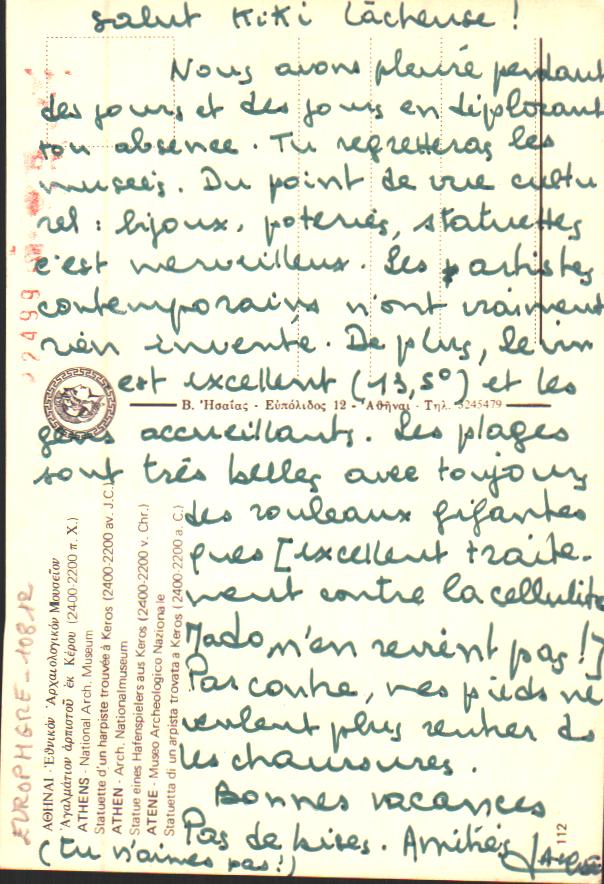 Salut Kiki Lâcheuse !
Nous avons pleuré pendant
des jours et des jours en déplorant
ton absence. Tu regretteras les
musées. Du point de vue cultu
rel : bijoux, poteries, statuettes
c'est merveilleux. Les artistes
contemporains n'ont vraiment
rien inventé. De plus, le vin
est excellent (13,5°) et les
Β. Ἠσαΐας - Εὐπόλιδος 12 - Ἀθῆναι - Τηλ. 3245479
gens accueillants. Les plages
sont très belles avec toujours
des rouleaux gigantes
ques [excellent traite-
ment contre la cellulite
Mado n'en revient pas !]
Par contre, mes pieds ne
veulent plus rentrer ds
les chaussures.
Bonnes vacances
Pas de bises. Amitiés
(tu n'aimes pas !)
22499
EUROPHARE - 108.12
ΑΘΗΝΑΙ - Ἐθνικὸν Ἀρχαιολογικὸν Μουσεῖον
Ἀγαλμάτιον ἁρπιστοῦ ἐκ Κέρου (2400-2200 π. Χ.)
ATHENS - National Arch. Museum
Statuette d'un harpiste trouvée á Keros (2400-2200 av. J.C.)
ATHEN - Arch. Nationalmuseum
Statue eines Hafenspielers aus Keros (2400-2200 v. Chr.)
ATENE - Museo Archeologico Nazionale
Statuetta di un arpista trovata a Keros (2400-2200 a. C.)
112